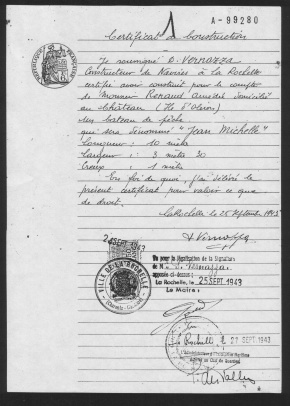 A-99280
Certificat de Construction
Je soussigné D. Vernazza
Constructeur de Navires à La Rochelle
certifie avoir construit pour le compte
de Monsieur Renaud Amédé domicilié
au Château (Ile d'Oléron)
un bateau de pêche
qui sera dénommé "Jean Michelle"
Longueur : 10 mètres
Largeur : 3 mètres 30
Creux : 1 mètre
En foi de quoi, j'ai délivré le
présent certificat pour valoir ce que
de droit.
La Rochelle le 25 Septembre 1943
D Vernazza
24 SEPT. 1943
VILLE DE LA ROCHELLE
Vu pour la légalisation de la Signature
de M. D. Vernazza
apposée ci-dessus :
La Rochelle, 25 SEPT. 1943
Le Maire :
La Rochelle le 27 SEPT. 1943
L'Administrateur de l'Inscription Maritime